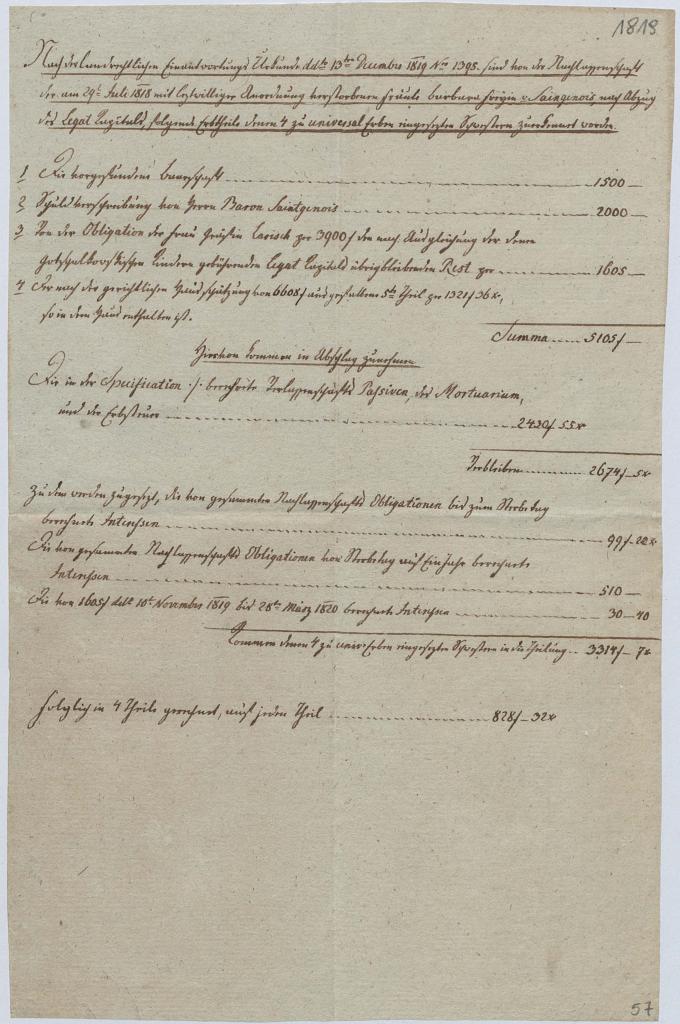 1819
Nach der landrechtlichen Einantwortungs Urkunde ddto 13ten December 1819 Nro 1395. sind von der Nachlassenschaft
der am 29t Juli 1818 mit letzwilliger Anordnung verstorbenen Fräule Barbara v Saingenois nach Abzug
des Legat Capitals, folgende Erbtheile denen 4 zu universal Erben eingesetzten Schwestern zuerkennet worden.
1 Die vorgefundene Baarschaft 1500 —
2 Schuldverschreibung von Herrn Baron Saintgenois 2000 —
3 Von der Obligation der Frau Gräfin Larisch per 3900f den nach Ausgleichung der denen
Gotschalkovskischen Kindern gebührenden Legat Capitals übrigbleibenden Rest per 1605 —
4 Der nach der gerichtlichen Hausschätzung von 6608f ausgefallene 5te Theil per 1321f 36x,
so in dem Haus enthalten ist.
Summa 5105f —
Hievon kommen in Abschlag zunehmen
Die in der Specification :/: berechnete Verlassenschafts Passiven, des Mortuarium,
und der Erbsteuer 2430f 55x
Verbleiben 2674f — 5x
Zu dem werden zugesezt, die von gesammten Nachlassenschafts Obligationen bis zum Sterbetag
berechnete Interessen 99f — 22x
Die von gesammten Nachlassenschafts Obligationen von Sterbetag auf Ein Jahr berechnete
Interessen 510 —
Die von 1605f ddto 10t November 1819 bis 28ten März 1820 berechnete Interessen 30 — 40
Kommen denen 4 zu univ: Erben eingesezten Schwestern in die Theilung 3314f — 7x
Folglich in 4 Theile gerechnet, auf jeden Theil 828f — 32x
57